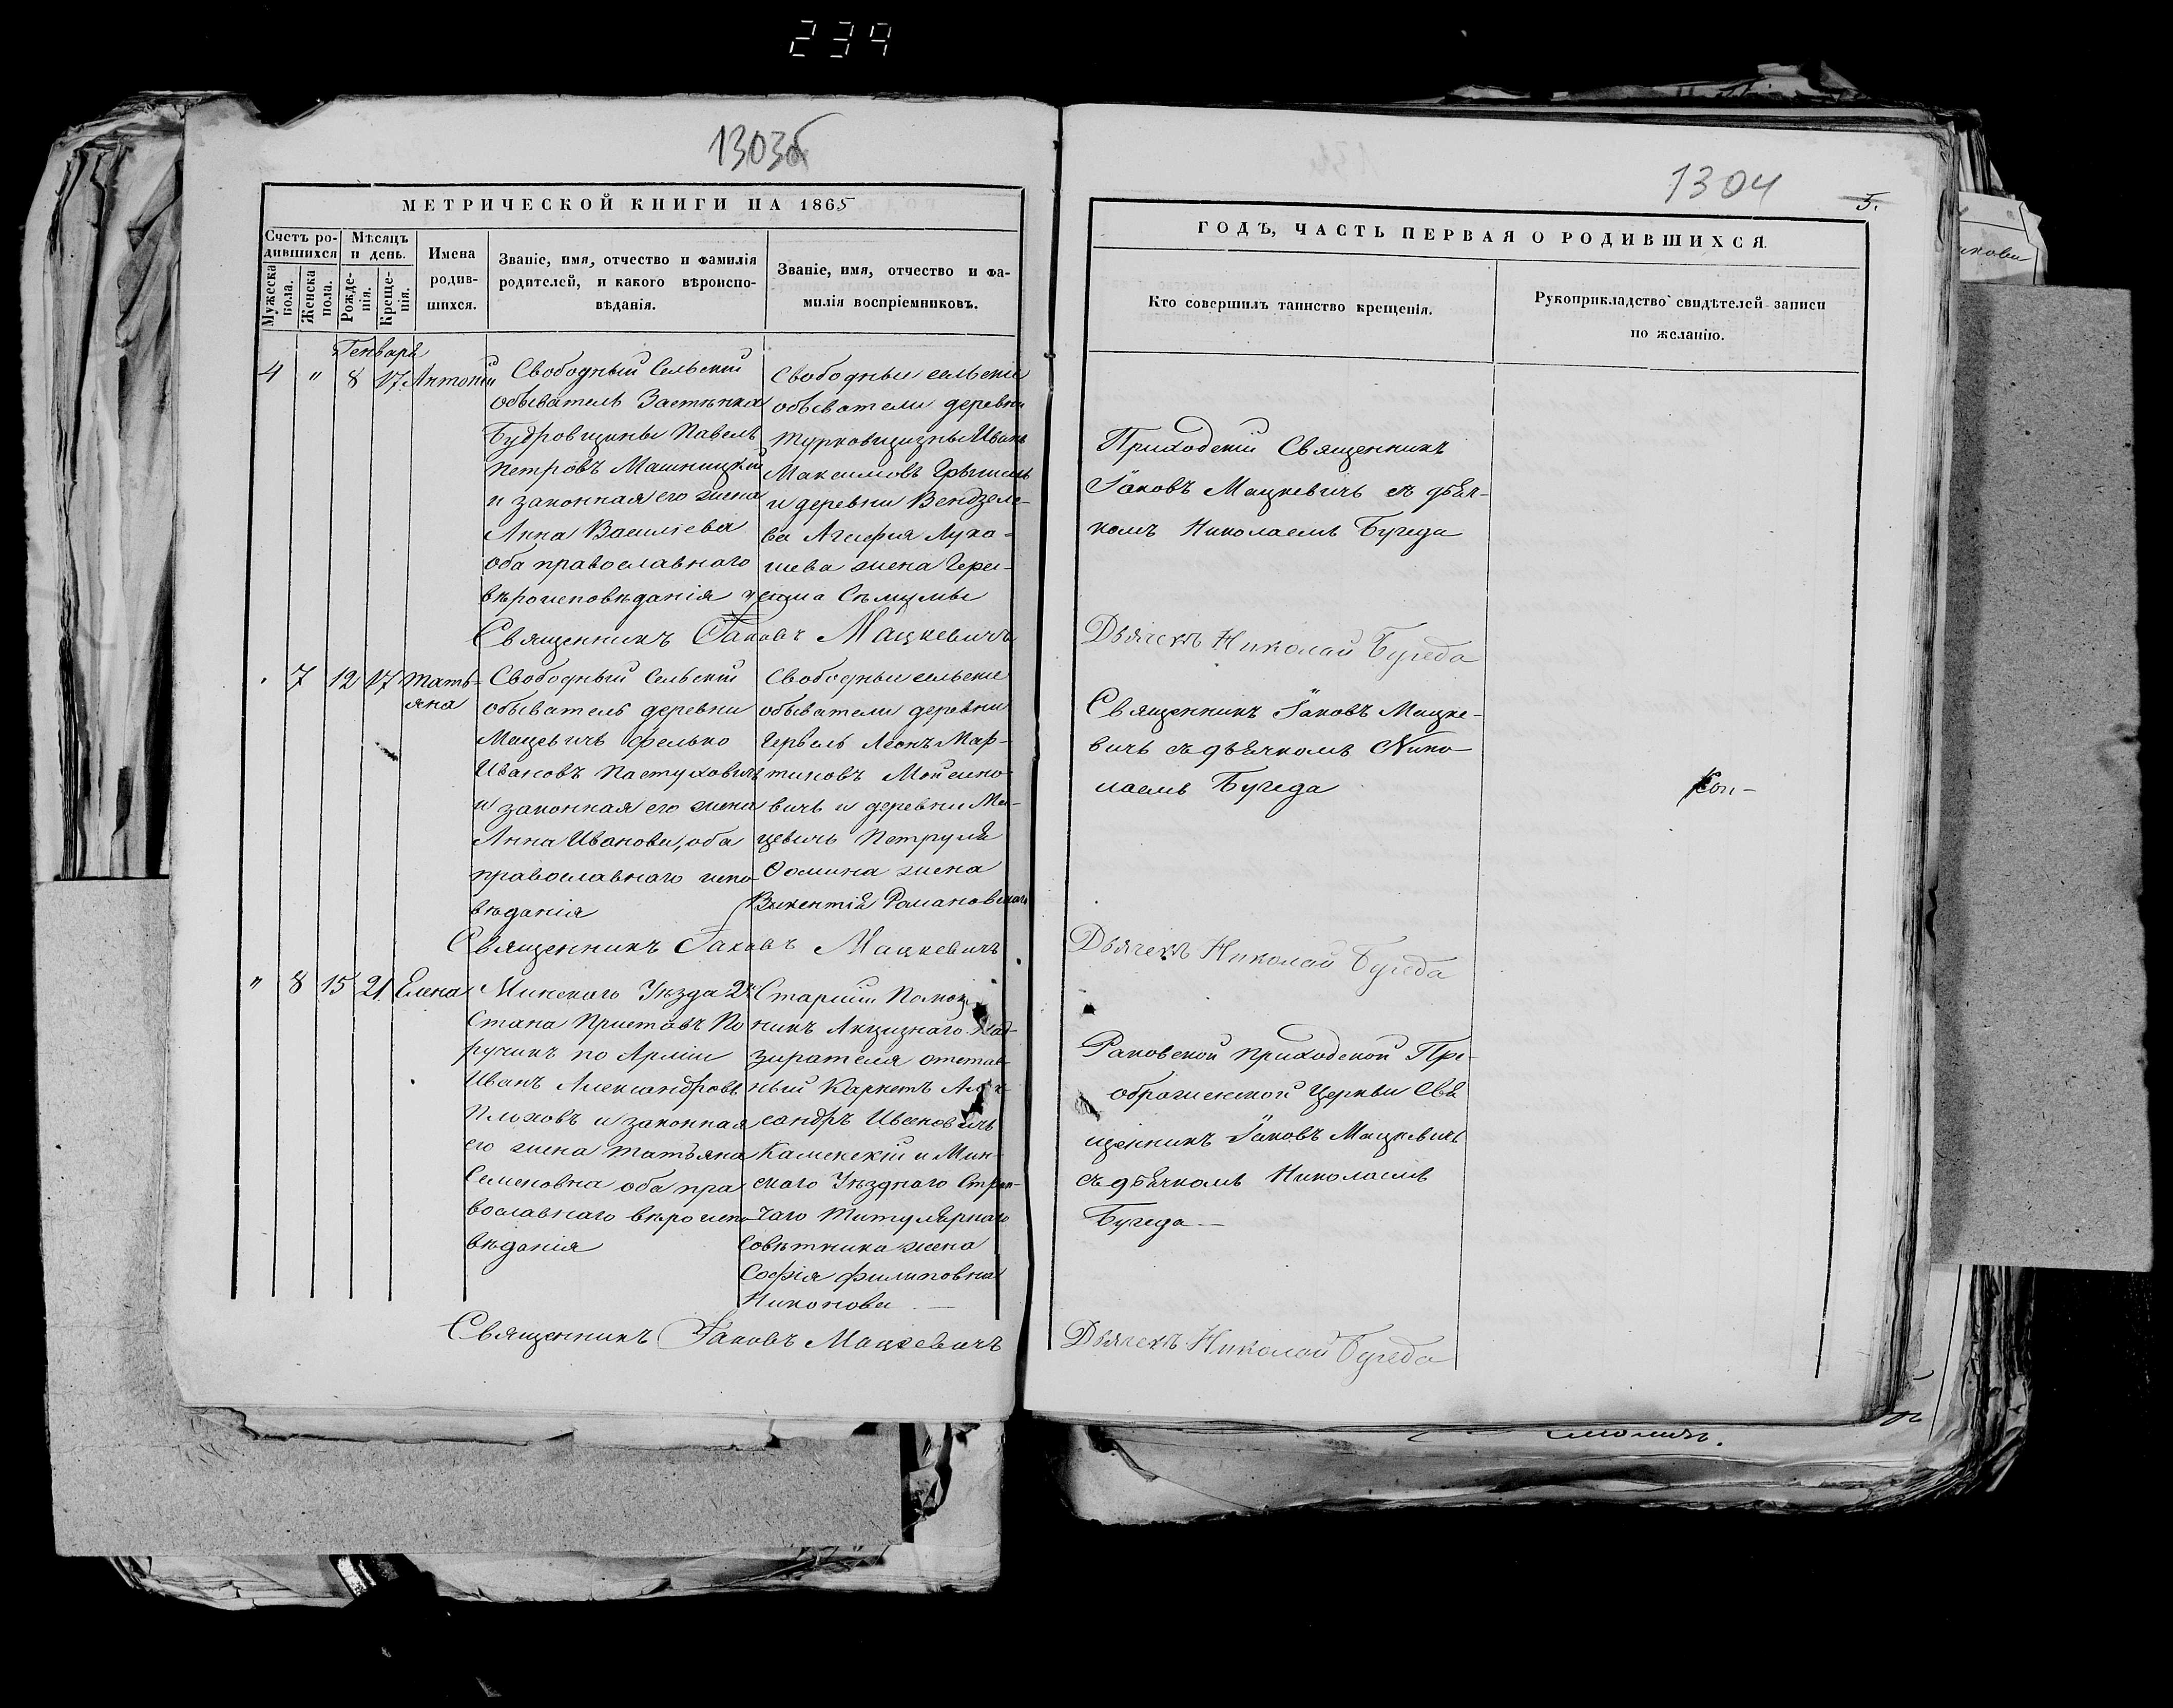 234
1303б
МЕТРИЧЕСКОЙ КНИГИ НА 1865
Счетъ ро-
дившихся
Мѣсяцъ
и день.
Мужеска
пола.
Женска
пола.
Рожде-
нія.
Креще-
нія.
Имена
родив-
шихся.
Званіе, имя, отчество и фамилія
родителей, и какого вѣроиспо-
вѣданія.
Званіе, имя, отчество и фа-
милія воспріемниковъ.
Генварь
4 " 8 17 Антоній
Свободный Сельскій
обыватель Застѣнка
Будровщины Павелъ
Петровъ Машницкій
и законная его жена
Анна Василіева
оба православнаго
вѣроисповѣданія
Свободные сельскіе
обыватели деревни
Турковщизны Иванъ
Максимовъ
и деревни Вендзело-
ва Агафія Лука-
шева жена
Священникъ Іаковъ Мацкевичъ
7 12 17 Тать-
яна
Свободный Сельскій
обыватель деревни
Мацевичъ Фелько
Ивановъ Пастуховичъ
и законная его жена
Анна Иванова, оба
православнаго испо-
вѣданія
Свободные сельскіе
обыватели деревни
Леонъ Мар-
тиновъ Мойсено-
вичъ и деревни Ма-
цевичъ Петруля
Фомина жена
Викентія Романовскаго
Священникъ Іаковъ Мацкевичъ
" 8 15 21 Елена
Минскаго Уѣзда 2го
Стана Приставъ По
ручикъ по Арміи
Иванъ Александровъ
Плоховъ и законная
его жена Татьяна
Семеновна оба пра
вославнаго вѣроиспо
вѣданія
Старшій Помощ
никъ Акцизнаго Над-
зирателя отстав-
ный Корнетъ Алек-
сандръ Ивановичъ
Каменскій и Мин-
скаго Уѣзднаго Стряп-
чаго Титулярнаго
Совѣтника жена
Софія Филиповна
Никонова
Священникъ Іаковъ Мацкевичъ
1304
5.
ГОДЪ, ЧАСТЬ ПЕРВАЯ О РОДИВШИХСЯ.
Кто совершилъ таинство крещенія.
Рукоприкладство свидѣтелей записи
по желанію.
Приходскій Священникъ
Іаковъ Мацкевичъ съ дьяч-
комъ Николаемъ Бучеда
Дьячекъ Николай Бучеда
Священникъ Іаковъ Мацке-
вичъ съ дьячкомъ Нико-
лаемъ Бучеда
Дьячекъ Николай Бучеда
Раковской приходской Пре-
ображенской Церкви Свя
щенникъ Іаковъ Мацкевичъ
съ дьячкомъ Николаемъ
Бучеда
Дьячекъ Николай Бучеда